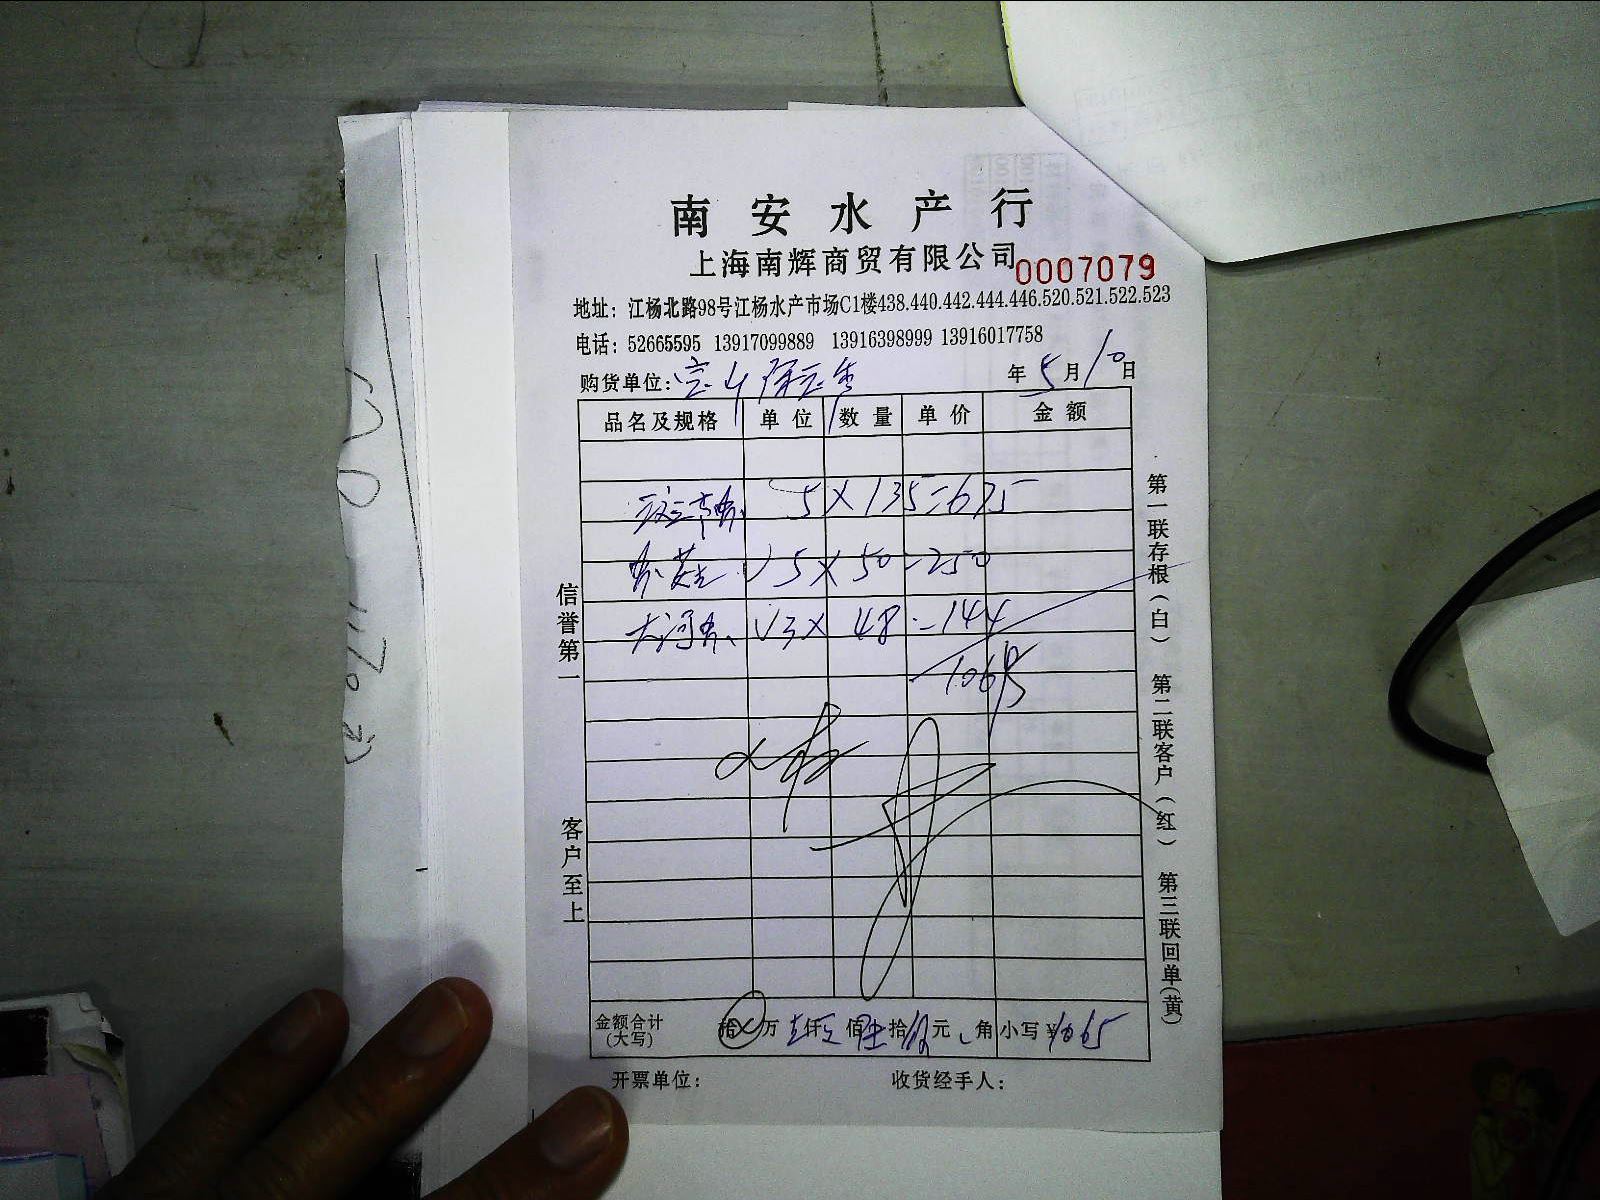 南安水产行
上海南辉商贸有限公司 0007079
地址：江杨北路98号江杨水产市场C1楼438.440.442.444.446.520.521.522.523
电话：52665595 13917099889 13916398999 13916017758
购货单位：宝山 年5月10日
品名及规格 单位 数量 单价 金额
5×135=675
√5×50=250
√3×48=144
1065
金额合计(大写) 拾万仟佰拾元角 小写¥1065
开票单位： 收货经手人：
信誉第一
客户至上
第一联存根（白） 第二联客户（红） 第三联回单(黄)